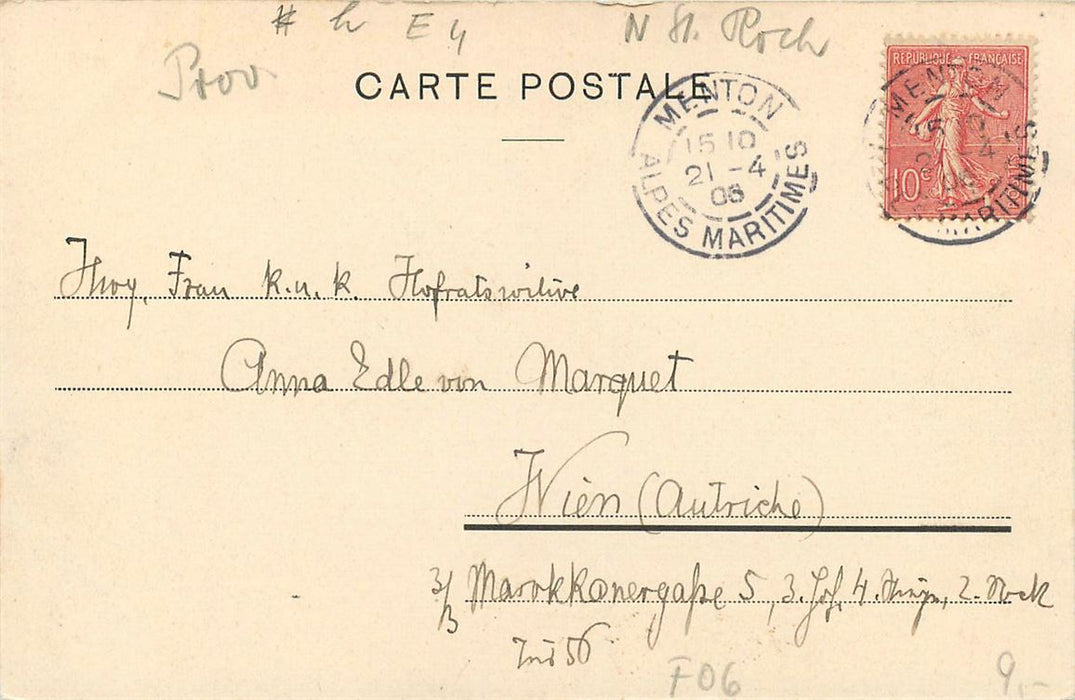 # h E 4 N St. Roch
Prov
CARTE POSTALE
MENTON
15 10
21 -4
06
ALPES MARITIMES
REPUBLIQUE FRANÇAISE
10c
MENTON
ALPES MARITIMES
Frau k. u. k. Hofratswitwe
Anna Edle von Marquet
Wien (Autriche)
3/3 Marokkanergaße 5, 3. Hof, 4. Stiege, 2. Stock
56
F06 9.-